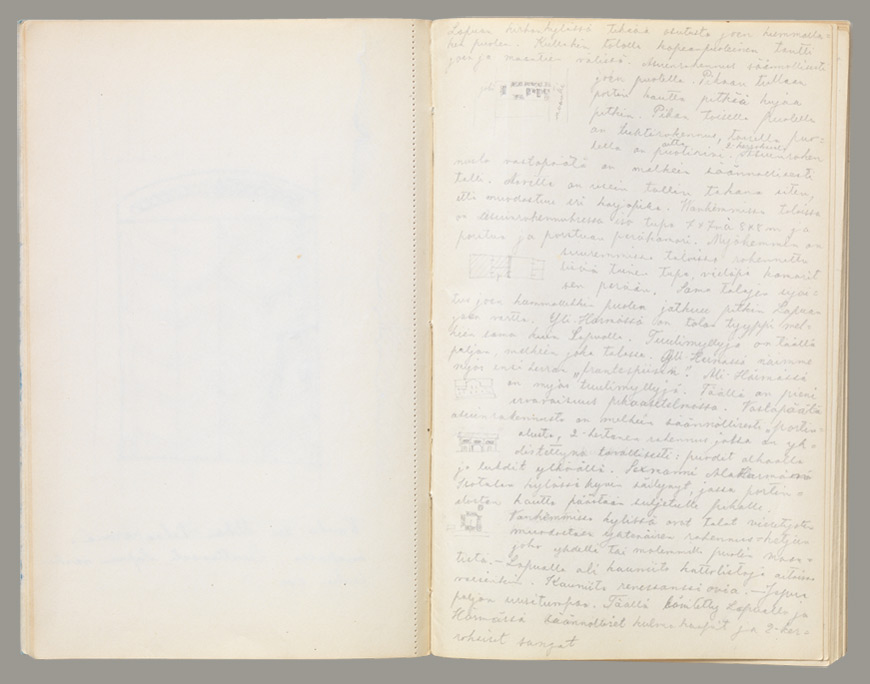 Lapuan kirkonkylässä tehtävä asutusta joen kummalla-
kin puolen. Kullakin talolla kapea-puoleinen tontti
joen ja maantien välissä. Asuinrakennus säännöllisesti
joen puolella. Pihaan tullaan
portin kautta pitkää kujaa
pitkin. Pihan toisella puolella
on luhtirakennus, toisella puo-
lella on puotirivi. Asuinraken
nusta vastapäätä on melkein säännöllisesti
talli. Navetta on usein tallin takana siten,
että muodostuu eri karjapiha. Vanhemmissa taloissa
on asuinrakennuksessa iso tupa 7 x 7 à 8 x 8 m ja
porstua ja porstuan peräkamari. Myöhemmin on
suuremmissa taloissa rakennettu
toinen tupa, vieläpä kamarit
sen perään. Sama talojen
joen kummallakin puolen jatkuu pitkin Lapuan
joen vartta. Yli-Härmässä on talon tyyppi mel-
kein sama kuin Lapualla. Tuulimyllyjä on täällä
paljon, melkein joka talossa. Yli-Härmässä näimme
myös ensi kerran „frantespiisin". Ali-Härmässä
on myös tuulimyllyjä. Täällä on pieni
eroavaisuus pihaasetelmassa. Vastapäätä
asuinrakennusta on melkein säännöllisesti „portin-
alusta, 2-kertanen rakennus jossa on yh-
distettynä tavallisesti: puodit alhaalla
ja luhdit ylhäällä.
kylässä hyvin säilynyt, jossa portin-
alustan kautta päästään suljetulle pihalle.
Vanhemmissa kylissä ovat talot vieretysten
muodostaen yhtenäisen rakennus-ketjun
joko yhdellä tai molemmilla puolin maan-
tietä. – Lapualla oli kauniita kattolistoja aitoissa
varsinkin. Kauniita renessanssi ovia. –
paljon uusitumpaa. Täällä Lapualla ja
Härmässä säännölliset kulmakaapit ja 2-ker-
rokset sängyt